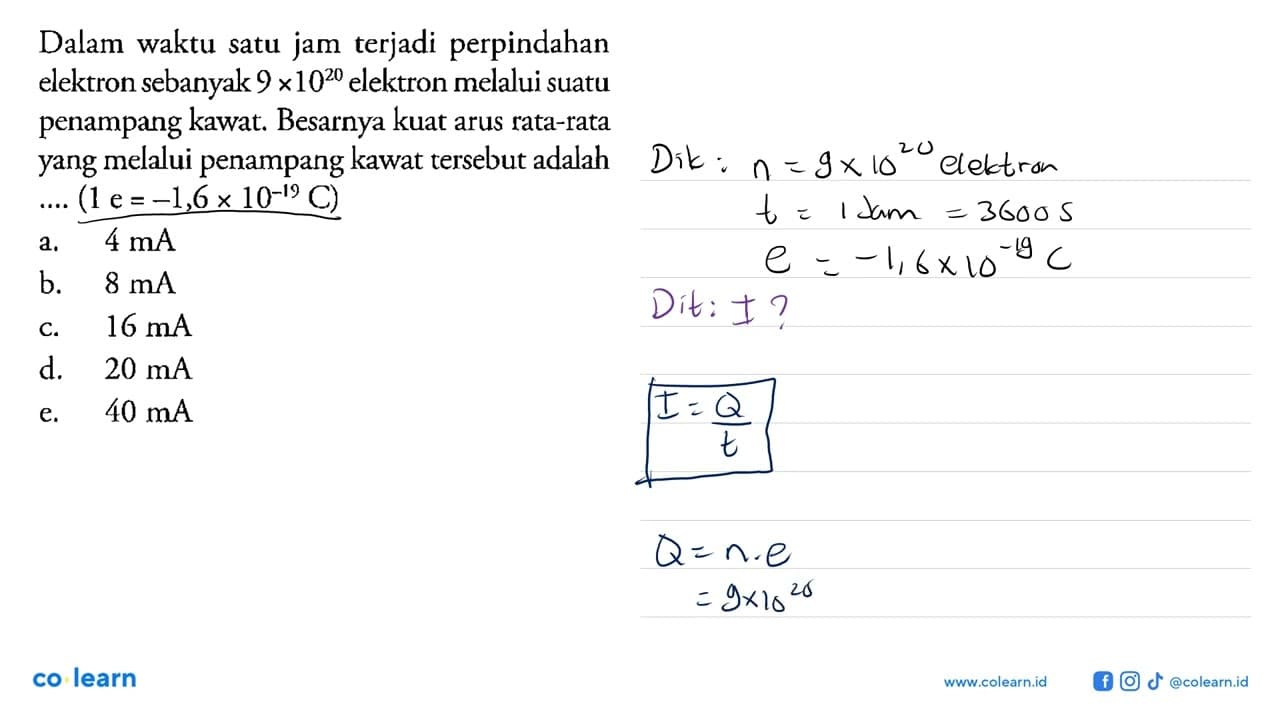 Dalam waktu satu jam terjadi perpindahan
elektron sebanyak 9 ×10²⁰ elektron melalui suatu
penampang kawat. Besarnya kuat arus rata-rata
yang melalui penampang kawat tersebut adalah
.... (1 e = –1,6 × 10⁻¹⁹ C)
a. 4 mA
b. 8 mA
c. 16 mA
d. 20 mA
e. 40 mA
Dik : n = 9 × 10²⁰ elektron
t = 1 Jam = 3600 s
e = -1,6 × 10⁻¹⁹ C
Dit : I ?
I = Q/t
Q = n . e
= 9×10²⁰
co learn
www.colearn.id
@colearn.id